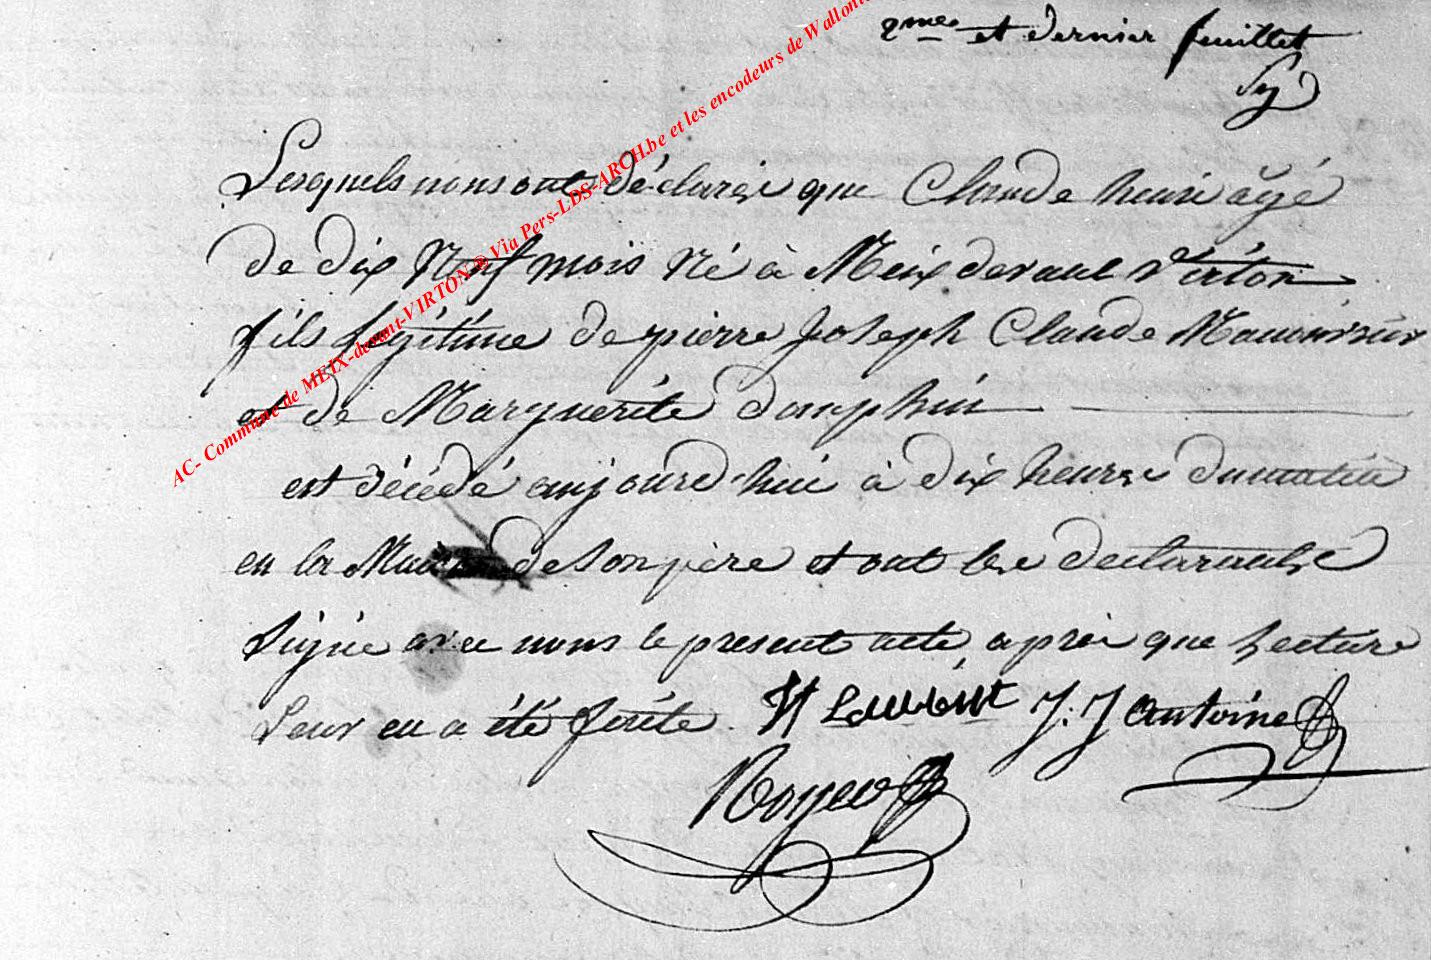 2mes et dernier feuillet
Sy
Lesquels nous ont déclarés que Claude henri âgé
de dix Neuf mois Né à Meix devant Virton
fils légitime de pierre Joseph Claude Manouvrier
et de Marguerite dauphin
est décédé aujourd'hui à dix heures du matin
en la Maison de Son père et ont les declarants
Signé avec nous le present acte après que Lecture
Leur en a été faite. H Laurent J. J Antoine
Royer
AC- Commune de MEIX-devant-VIRTON ® Via Pers-LDS-ARCH.be et les encodeurs de Wallonie